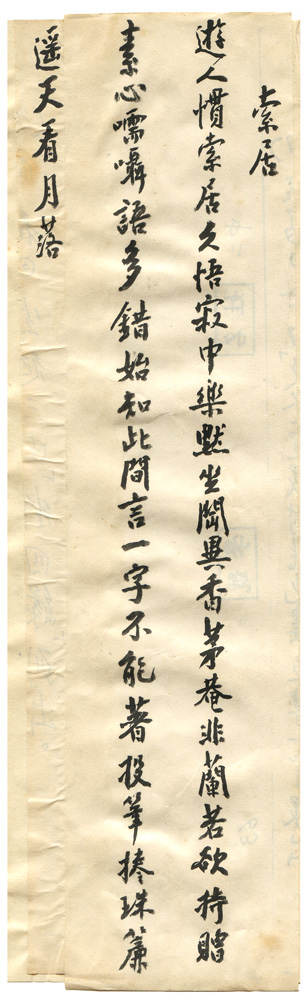 索居
遊人慣索居久悟寂中樂默坐聞異香茅菴非蘭若欲持贈
素心嚅囁語多錯始知此間言一字不能著投筆捲珠簾
遥天看月落